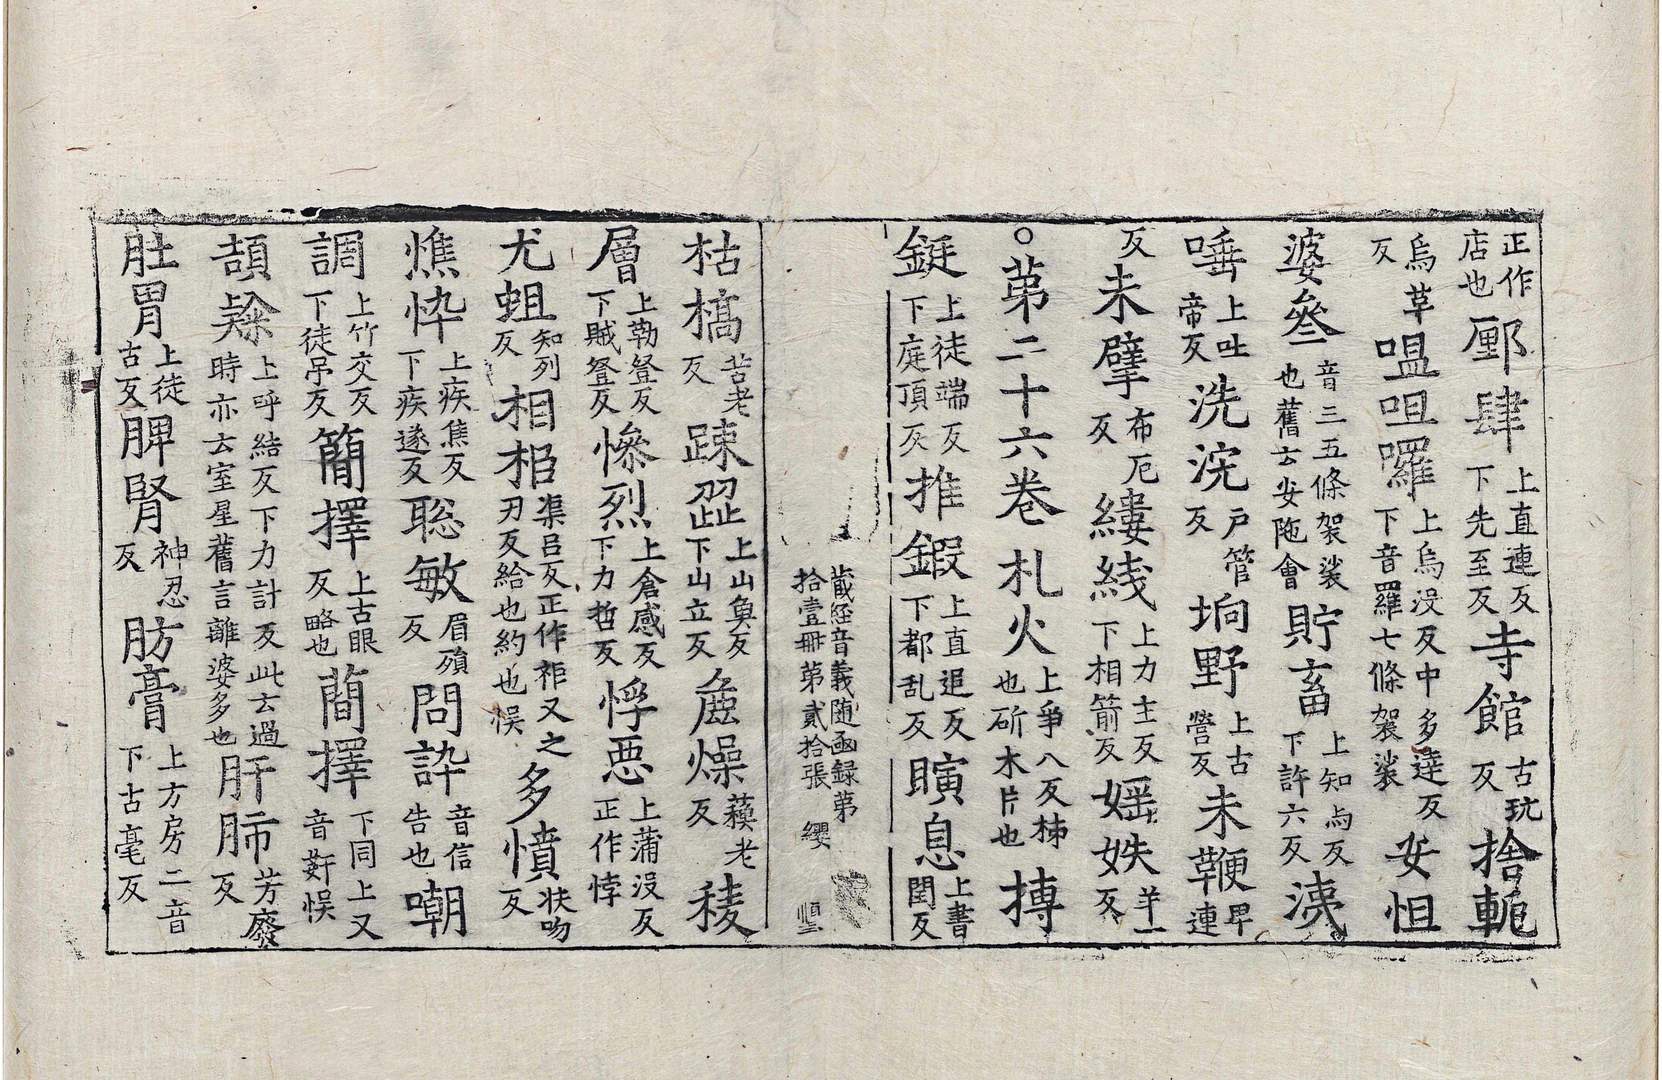 正作店也㕓肆上直連反下先至反寺館古玩反捨軛
烏草反嗢呾囉上烏没反中多達反下音羅七條袈裟安怛
婆㕘音三五條袈裟也舊云安陁會貯畜上知与反下許六反洟
唾上吐帝反洗浣户管反坰野上古營反未鞭卑連
反未擘布厄反縷綫上力主反下相箭反婬妷羊一反
○第二十六卷札火上爭八反柹也斫木片也摶
鋌上徒端反下庭頂反推鍜上直追反下都乱反瞚息上書閏反
藏經音義随函録第拾壹冊第貳拾張 纓 恒
枯槁苦老反踈澀上山魚反下山立反麁燥蘓老反稜
層上勒登反下賊登反慘烈上倉感反下力哲反悖惡上蒲没反正作悖
尤蛆知列反相柜渠吕反正作秬又之刃反給也約也悮多憤扶吻反
憔悴上疾焦反下疾遂反聡敏眉殞反問訊音信告也嘲
調上竹交反下徒吊反簡擇上古眼反略也蕳擇下同上又音姧悮
頡上呼結反下力計反此去過時亦去室星舊言離婆多也肝肺芳廢反
肚胃上徒古反脾腎神忍反肪膏上方房二音下古毫反